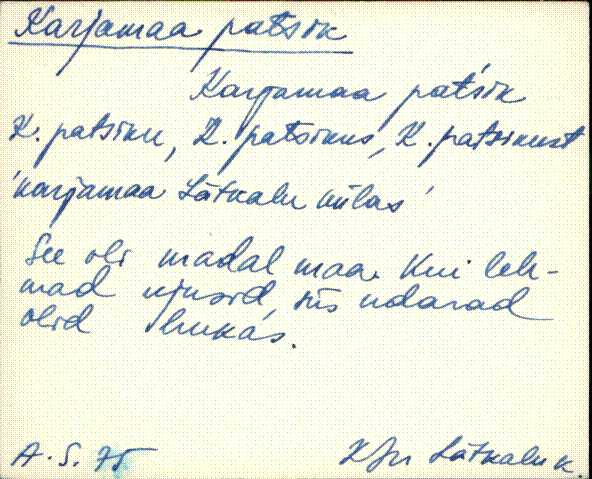 Karjamaa patsik
Karjamaa patsik
K. patsiku, K. patsikus, K. patsikust
'karjamaa Lätkalu külas'
See oli madal maa. Kui leh-
mad ujusid, siis udarad
olid lukas.
A. S. 75
KJn Lätkalu k.